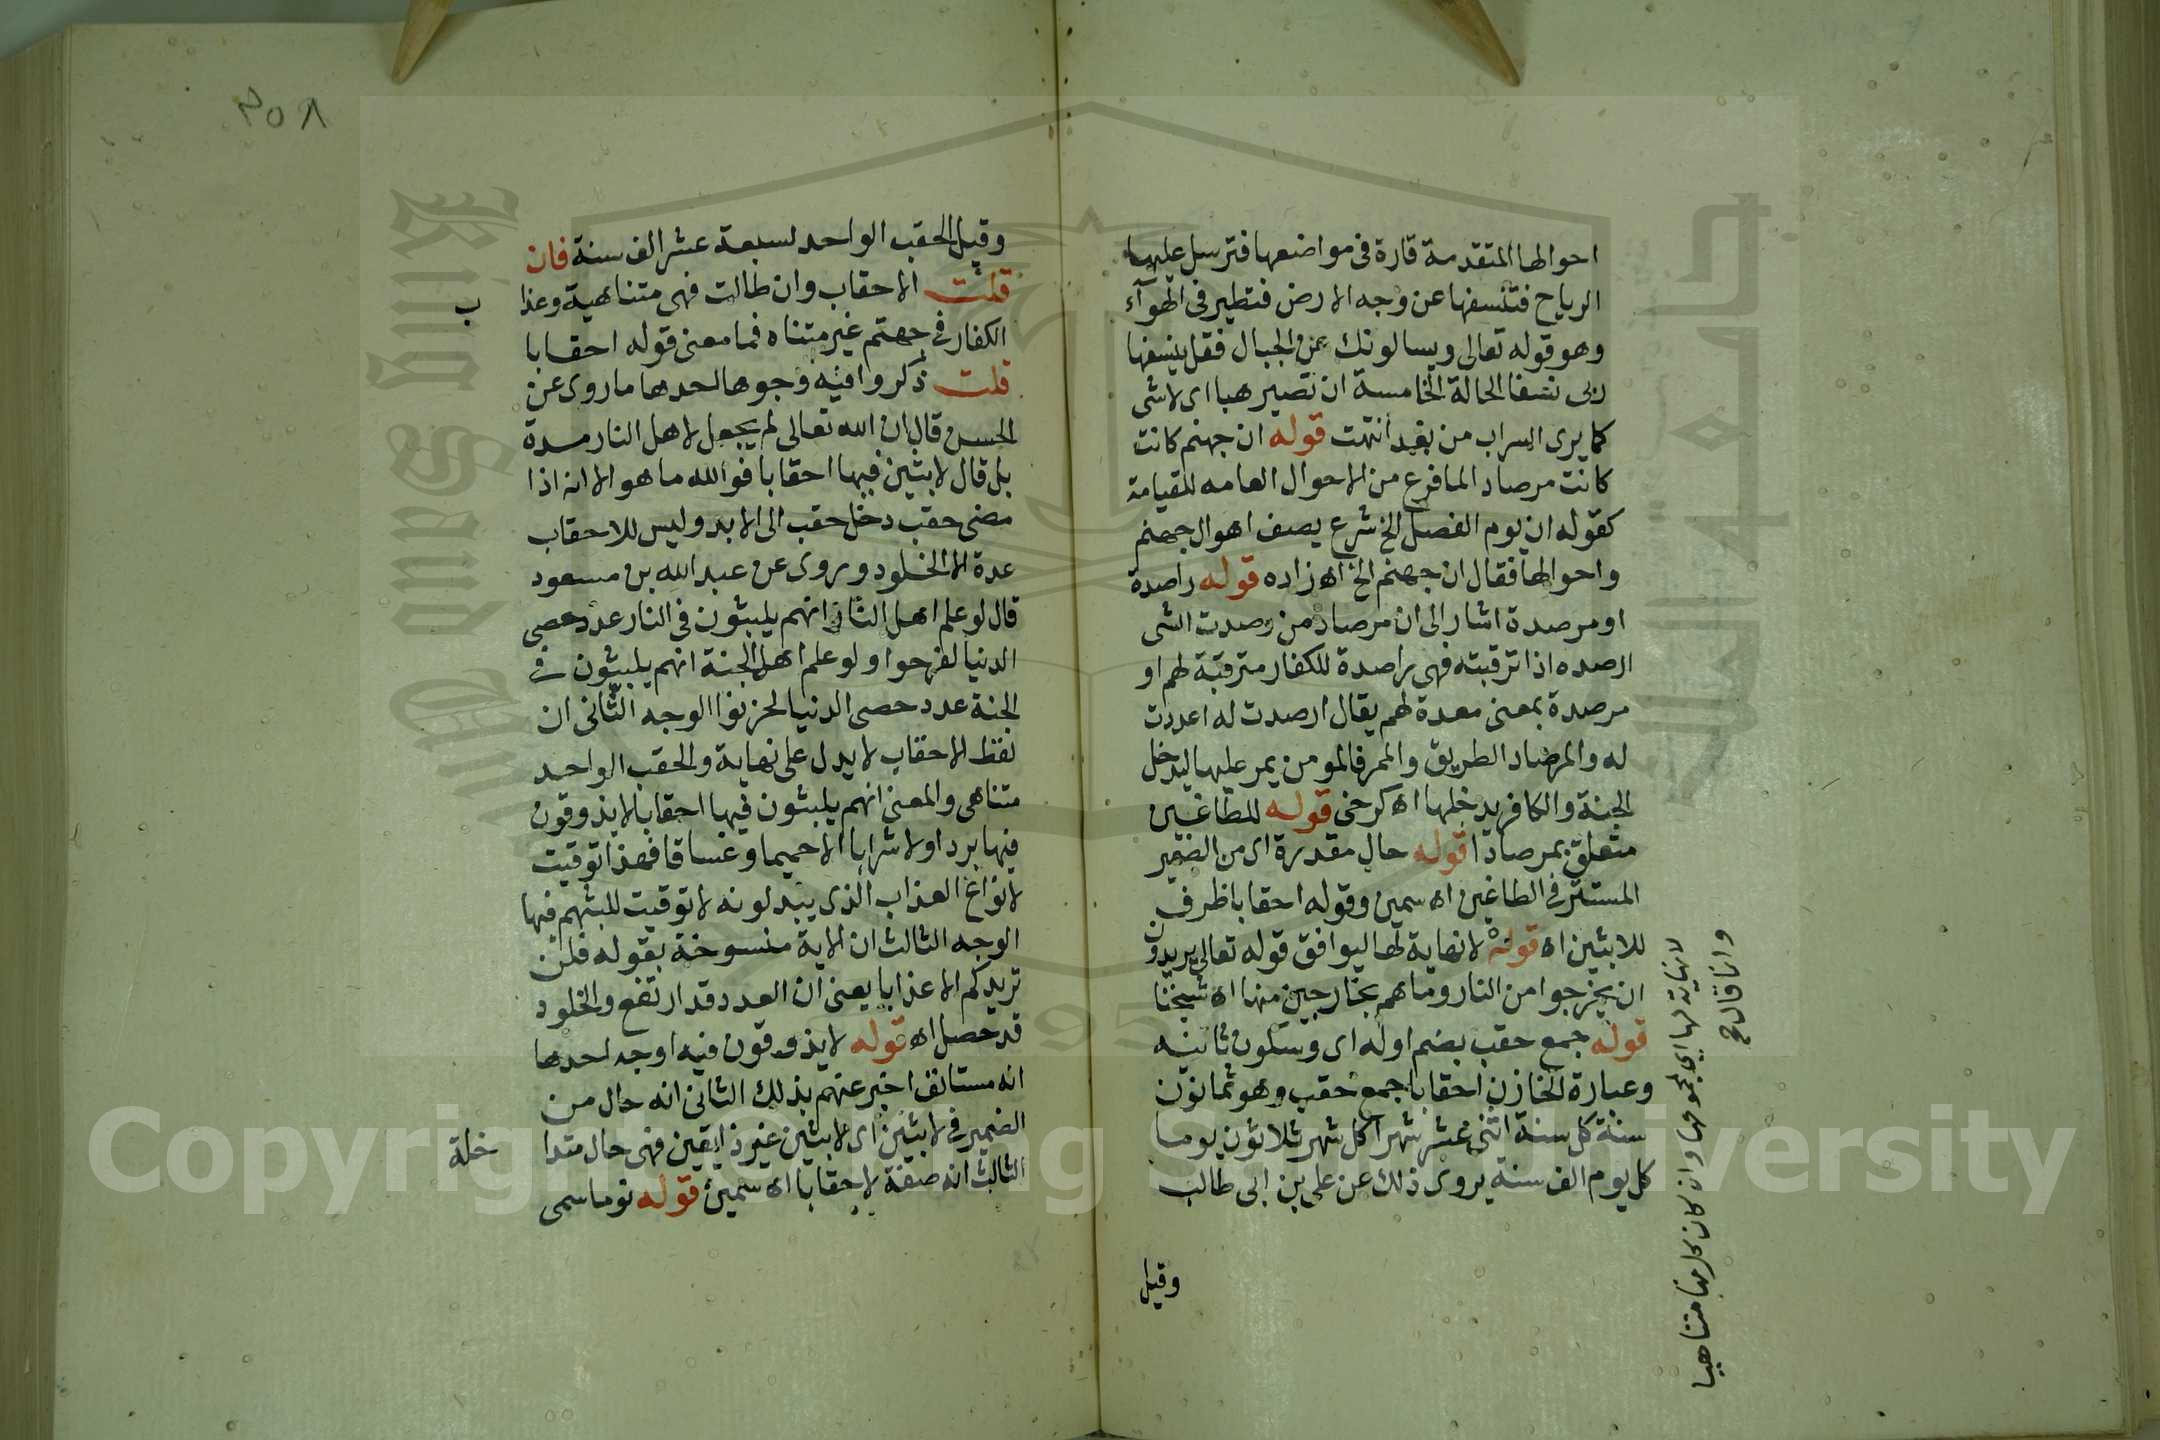 احوالها المتقدمة قارة فى مواضعها فترسل عليها
الرياح فتنسفها عن وجه الارض فتطير فى الهوآء
وهو قوله تعالى ويسالونك عن الجبال فقل ينسفها
ربى نسفا الحالة الخامسة ان تصير هبا اى لاشى
كما يرى السراب من بعد انتهت قوله ان جهنم كانت
كانت مرصادا لما فرع من الاحوال العامه للقيامة
كقوله ان يوم الفصل الخ شرع يصف اهوال جهنم
واحوالها فقال ان جهنم الخ اه زاده قوله راصدة
او مرصدة اشار الى ان مرصاد من رصدت الشى
ارصده اذا ترقبته فهى راصدة للكفار مترقبة لهم او
مرصدة بمعنى معدة لهم يقال ارصدت له اعددت
له والمرصاد الطريق والممر فالمومن يمر عليها ليدخل
الجنة والكافر يدخلها اه كرخى قوله للطاغين
متعلق بمرصادا قوله حال مقدرة اى من الضمير
المستتر فى الطاغين اه سمين وقوله احقابا ظرف
للابثين اه قوله لا نهاية لها ليوافق قوله تعالى يريدون
ان يخرجوا من النار وما هم بخارجين منها اه شيخنا
قوله جمع حقب بضم اوله اى وسكون ثانيه
وعبارة الخازن احقابا جمع حقب وهو ثمانون
سنة كل سنة اثنى عشر شهرا كل شهر ثلاثون يوما
كل يوم الف سنة يروى ذلك عن على بن ابى طالب
وقيل
لا نهاية لها اى لمجموعها وان كان كل منها متناهيا
وانما قال ح
٣٥٨
وقيل الحقب الواحد لسبعة عشر الف سنة فان
قلت الاحقاب وان طالت فهى متناهية وعذا
ب
الكفار فى جهنم غير متناه فما معنى قوله احقابا
قلت ذكروا فيه وجوها احدها ما روى عن
الحسن قال ان الله تعالى لم يجعل لاهل النار مدة
بل قال لابثين فيها احقابا فوالله ما هو الا انه اذا
مضى حقب دخل حقب الى الابد وليس للاحقاب
عدة الا الخلود وروى عن عبد الله بن مسعود
قال لو علم اهل النار انهم يلبثون فى النار عدد حصى
الدنيا لفرحوا ولو علم اهل الجنة انهم يلبثون فى
الجنة عدد حصى الدنيا لحزنوا الوجه الثانى ان
لفظ الاحقاب لا يدل على نهاية والحقب الواحد
متناهى والمعنى انهم يلبثون فيها احقابا لا يذوقون
فيها بردا ولا شرابا الا حميما وغساقا فهذا توقيت
لانواع العذاب الذى يبدلونه لا توقيت للبثهم فيها
الوجه الثالث ان الاية منسوخة بقوله فلن
نزيدكم الا عذابا يعنى ان العدد قد ارتفع والخلود
قد حصل اه قوله لا يذوقون فيه اوجه احدها
انه مستانف اخبر عنهم بذلك الثانى انه حال من
الضمير فى لابثين اى لابثين غير ذائقين فهى حال متدا
خلة
الثالث انه صفة لاحقابا اه سمين قوله نوما سمى
Copyright © King Saud University